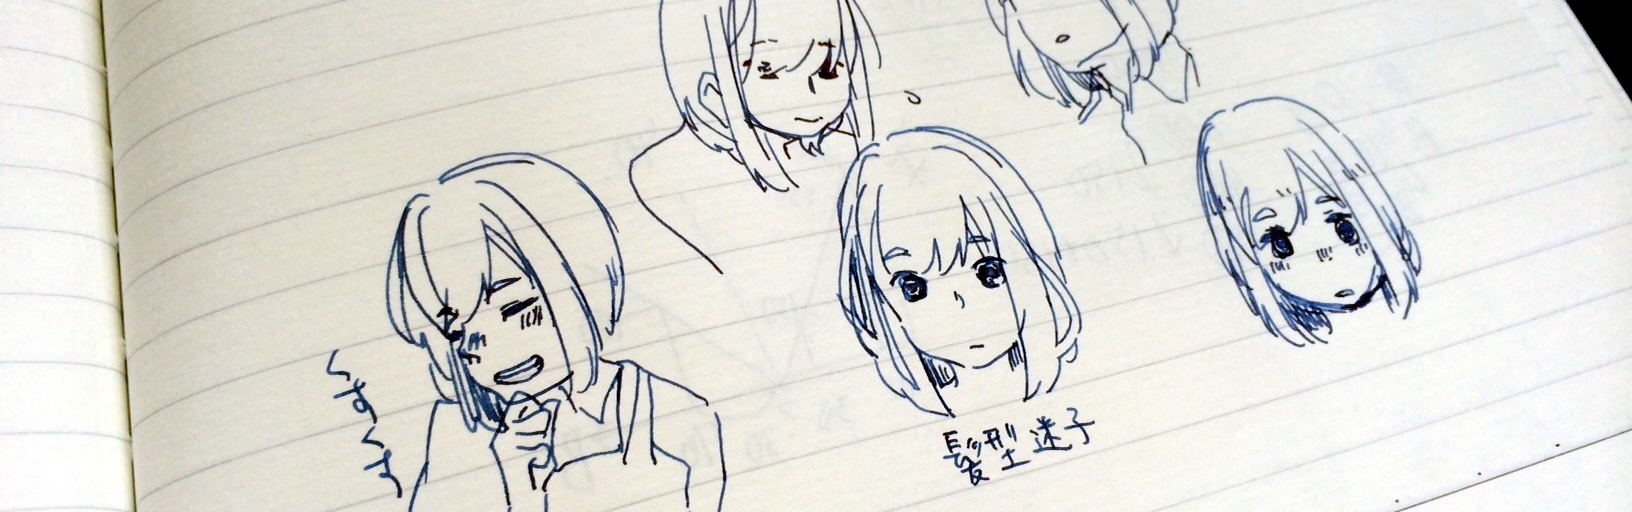 くすくす
髪型迷子